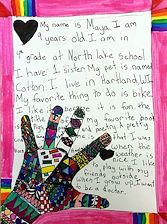 My name is Maya. I am
9 years old I am in
4th grade at North lake school
I have 1 sister My pet is named
Cotton. I live in Hartland, WI
My favorite thing to do is bike.
I like it is fun. the
my favorite book
and poetry
that I was
when the
weather is
nice. I like
to play with my
friends outside.
when I grow up I want
to be a doctor.